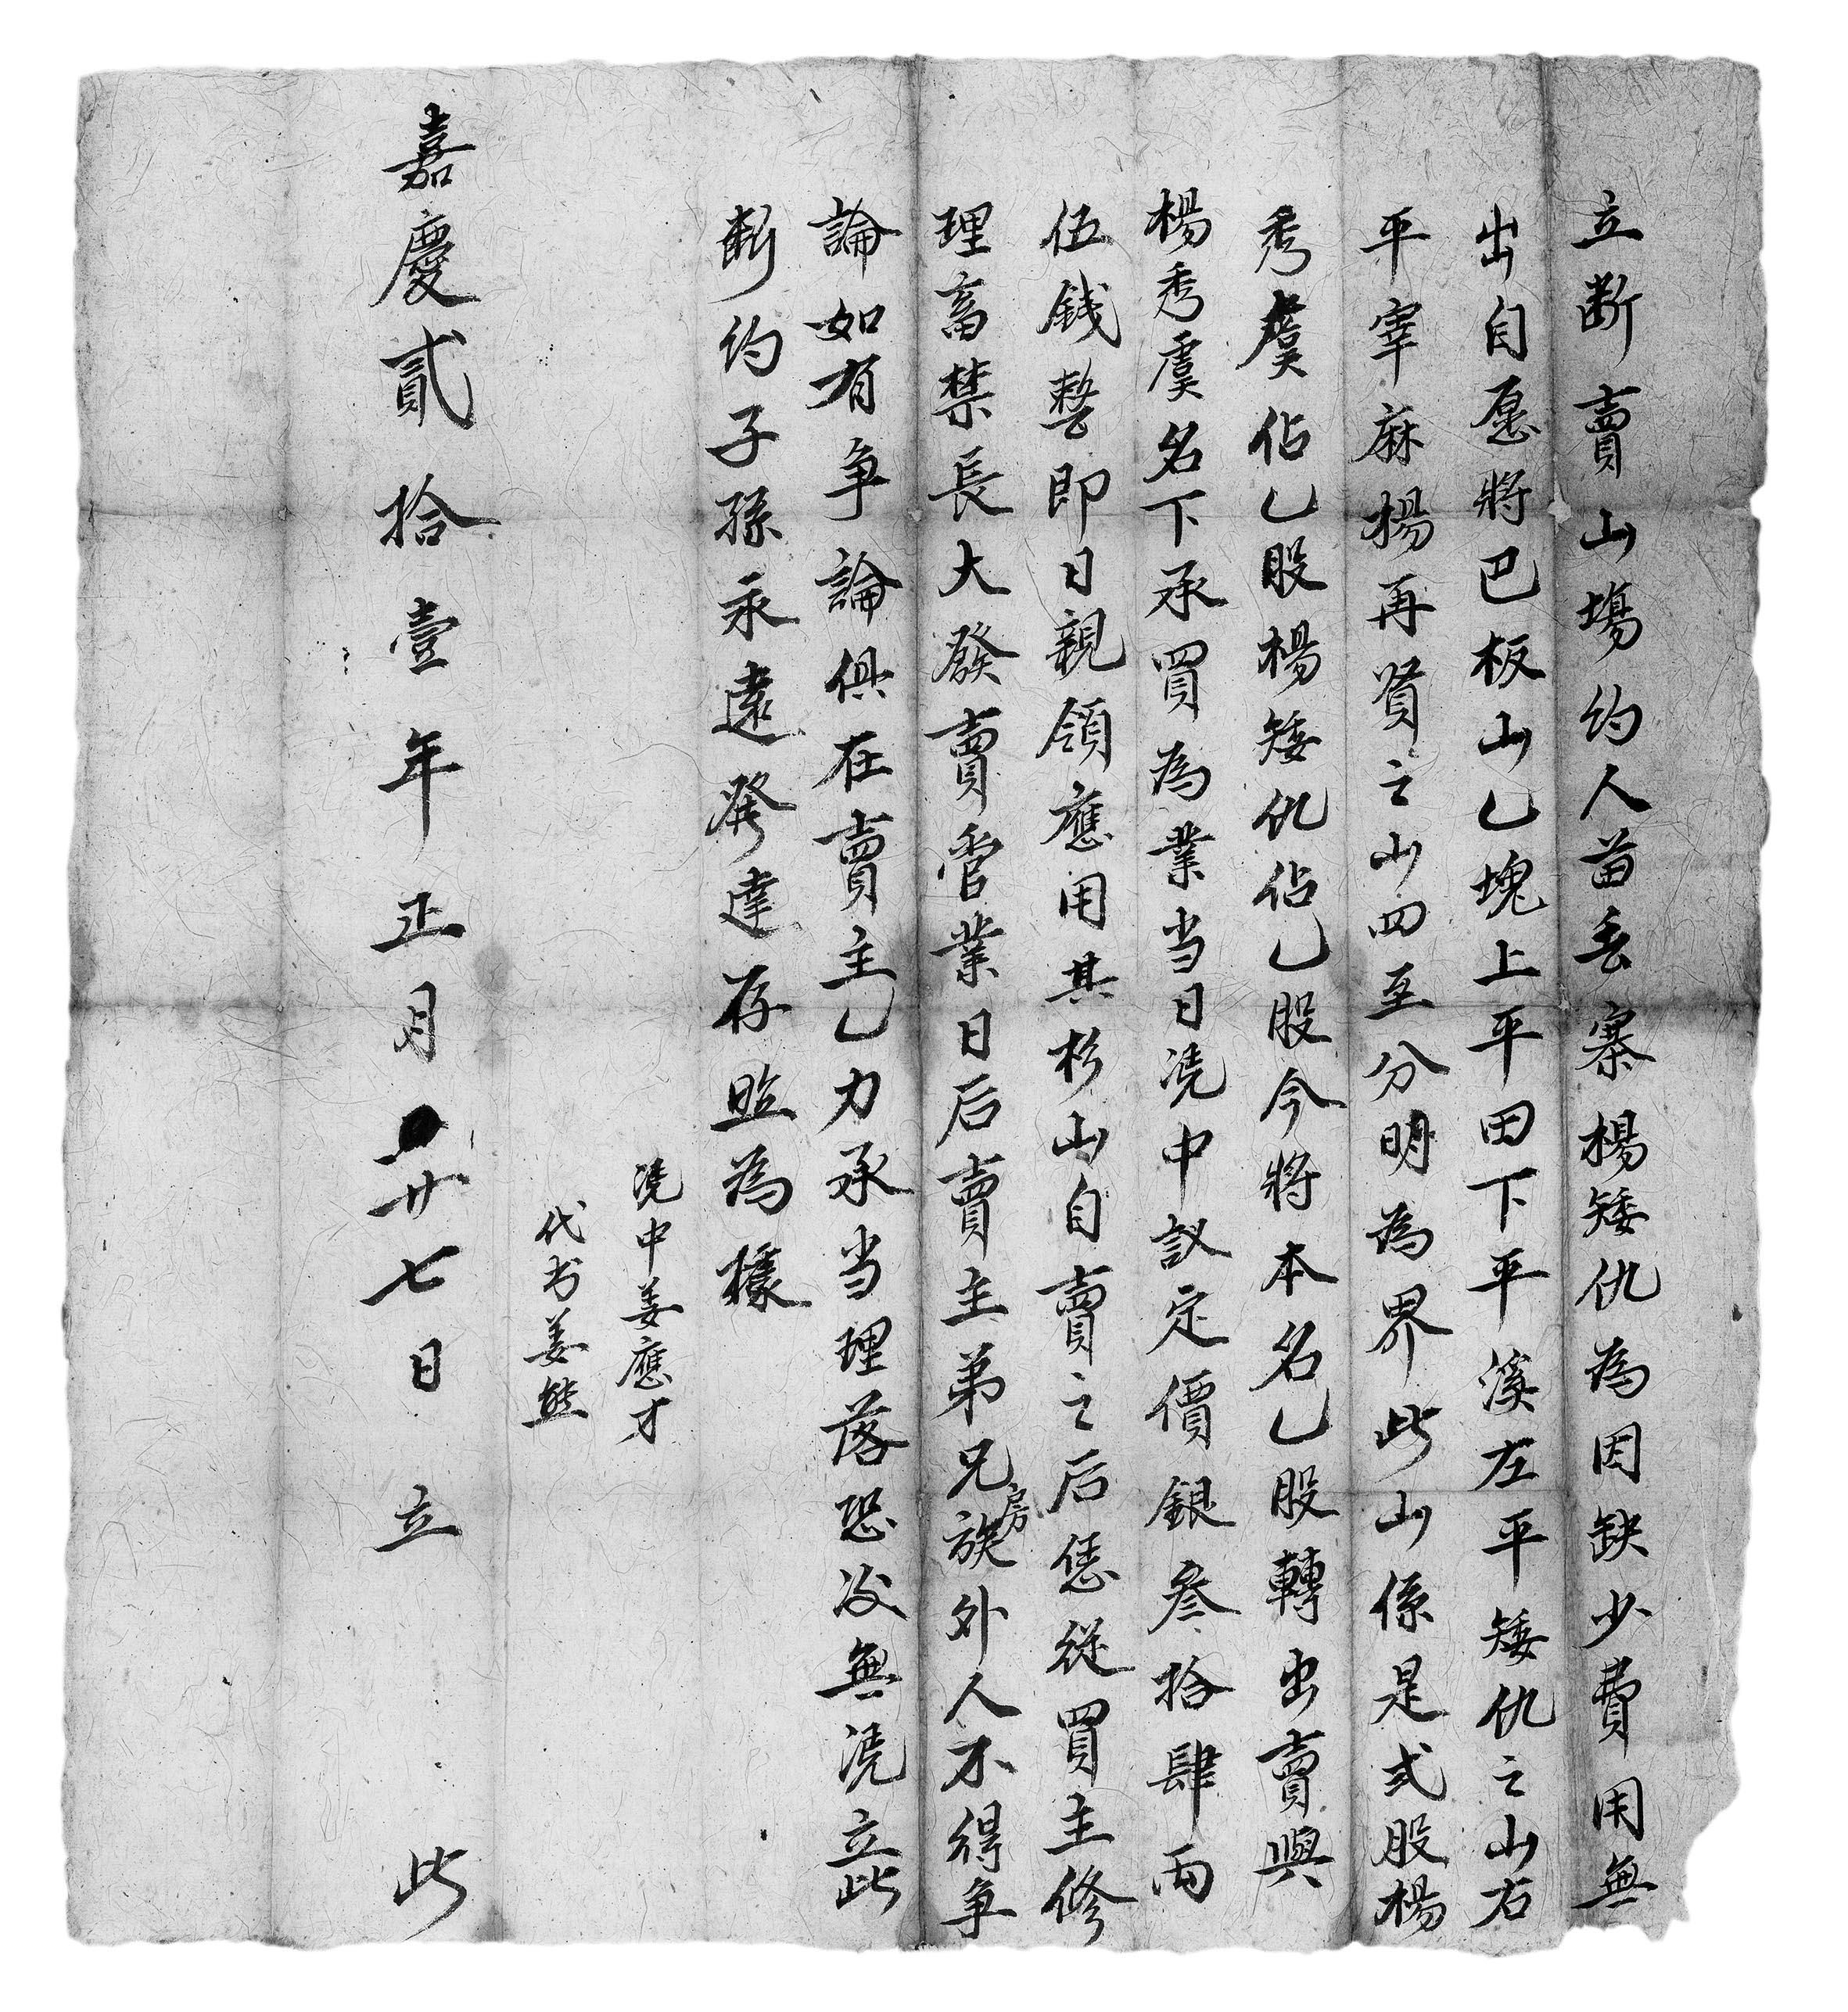 立断賣山塲約人苗丢寨楊矮仇為因缺少費用無
出自愿將巴板山乚塊上平田下平溪左平矮仇之山右
平宰麻楊再贤之山四至分明為界此山係是弍股楊
秀虞佔乚股楊矮仇佔乚股今將本名乚股轉出賣與
楊秀虞名下承買為業当日凴中議定價銀叁拾肆両
伍錢整即日親領應用其杉山自賣之后恁從買主修
理畜禁長大發賣管業日后賣主弟兄房族外人不得争
論如有争論俱在賣主乚力承当理落恐后無凴立此
断約子孫永遠發達存照為據
凴中姜應才
代书姜熊
嘉慶貳拾壹年正月廿七日立 此